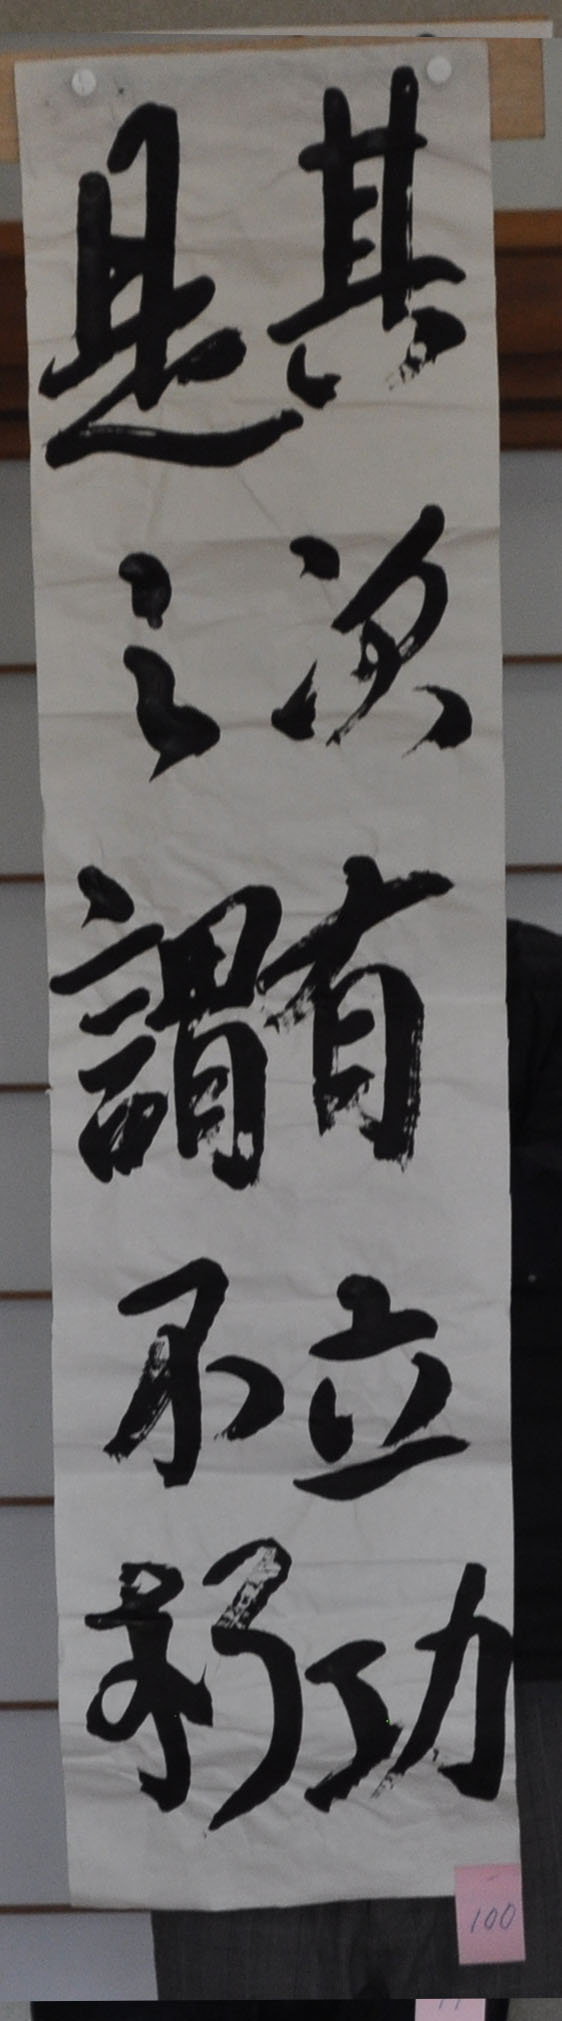 其次有立功
是之謂不朽
100